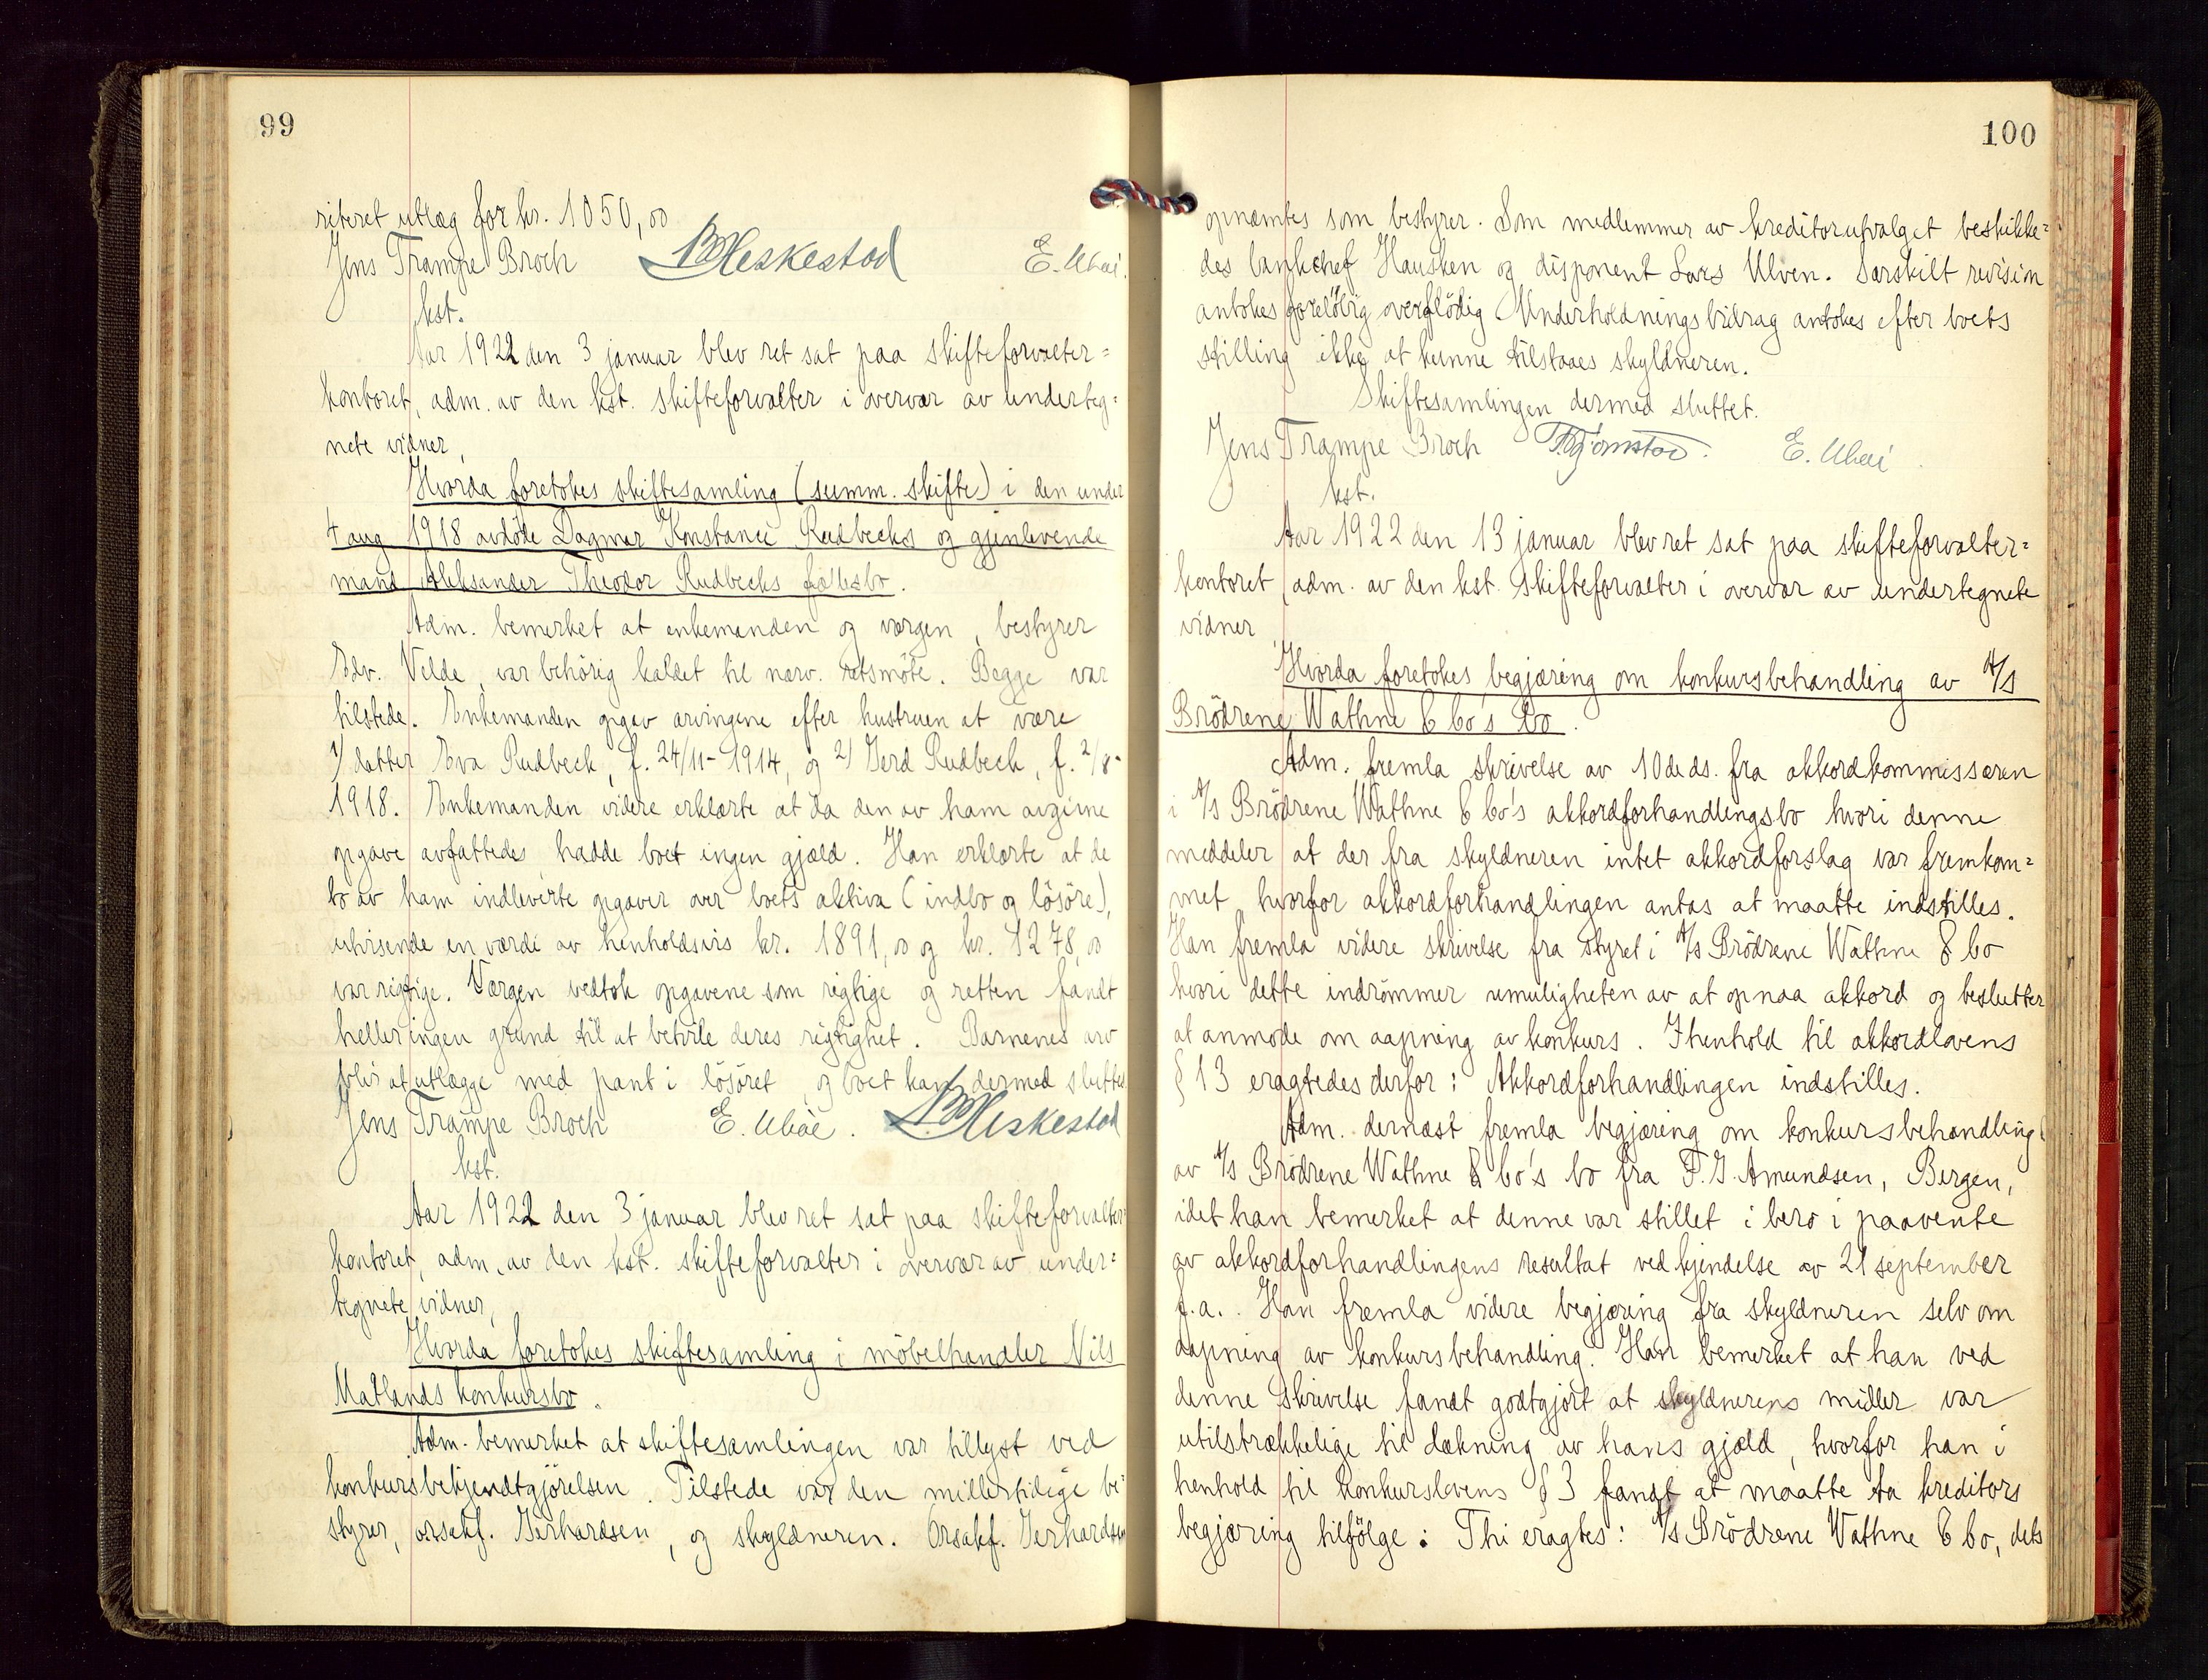 99
riteret utlæg for kr. 1050,00
Jens Trampe Broch BHeskestad E. Ubøi.
kst.
Aar 1922 den 3 januar blev ret sat paa skifteforvalter=
kontoret, adm. av den kst. skifteforvalter i overvær av underteg=
nete vidner,
Hvorda foretokes skiftesamling (summ. skifte) i den under
4 aug 1918 avdöde Dagmar Konstance Rudbecks og gjenlevende
mand Aleksander Theodor Rudbecks fællesbo.
Adm. bemerket at enkemanden og værgen, bestyrer
Edv. Velde, var behörig kaldet til nærv. retsmöte. Begge var
tilstede. Enkemanden opgav arvingene efter hustruen at være
1/ datter Eva Rudbeck, f. 24/11-1914, og 2/ Gerd Rudbeck, f. 2/8-
1918. Enkemanden videre erklærte at da den av ham avgivne
opgave avfattedes hadde boet ingen gjæld. Han erklærte at de
to av ham indleverte opgaver over boets aktiva (indbo og lösöre),
utvisende en værdi av henholdsvis kr. 1891,00 og kr. 1278,00
var rigtige. Værgen vedtok opgavene som rigtige og retten fandt
heller ingen grund til at betvile deres rigtighet. Barnenes arv
blir at utlægge med pant i lösöret, og boet kan dermed sluttes
Jens Trampe Broch E. Ubøi. BHeskestad
kst.
Aar 1922 den 3 januar blev ret sat paa skifteforvalter=
kontoret, adm. av den kst. skifteforvalter i overvær av under=
tegnete vidner,
Hvorda foretokes skiftesamling i möbelhandler Nils
Matlands konkursbo.
Adm. bemerket at skiftesamlingen var tillyst ved
konkursbekjendtgjörelsen. Tilstede var den midlertidige be=
styrer, orsakf. Gerhardsen, og skyldneren. Orsakf. Gerhardsen
100
opnæmtes som bestyrer. Som medlemmer av kreditorutvalget beskikke=
des bankchef Hausken og disponent Lars Ulven. Særskilt revision
antokes forelöbig overflödig Underholdningsbidrag antokes efter boets
stilling ikke at kunne tilstaaes skyldneren.
Skiftesamlingen dermed sluttet.
Jens Trampe Broch E. Ubøi.
kst.
Aar 1922 den 13 januar blev ret sat paa skifteforvalter=
kontoret, adm. av den kst. skifteforvalter i overvær av undertegnete
vidner,
Hvorda foretokes begjæring om konkursbehandling av A/S
Brödrene Wathne & Co's bo.
Adm. fremla skrivelse av 10de ds. fra akkordkommissæren
i A/S Brödrene Wathne & Co's akkordforhandlingsbo hvori denne
meddeler at der fra skyldneren intet akkordforslag var fremkom=
met hvorfor akkordforhandlingen antas at maatte indstilles.
Han fremla videre skrivelse fra styret i A/S Brödrene Wathne & Co
hvori dette indrömmer umuligheten av at opnaa akkord og beslutter
at anmode om aapning av konkurs. I henhold til akkordlovens
§ 13 eragtedes derfor: Akkordforhandlingen indstilles.
Adm. dernæst fremla begjæring om konkursbehandling
av A/S Brödrene Wathne & Co's bo fra F. G. Amundsen, Bergen,
idet han bemerket at denne var stillet i bero i paavente
av akkordforhandlingens resultat ved kjendelse av 21 september
f.a.. Han fremla videre begjæring fra skyldneren selv om
aapning av konkursbehandling. Han bemerket at han ved
denne skrivelse fandt godtgjort at skyldnerens midler var
utilstrækkelige til dækning av hans gjæld, hvorfor han i
henhold til konkurslovens § 3 fandt at maatte ta kreditors
begjæring tilfölge: Thi eragtes: A/S Brödrene Wathne & Co, dets